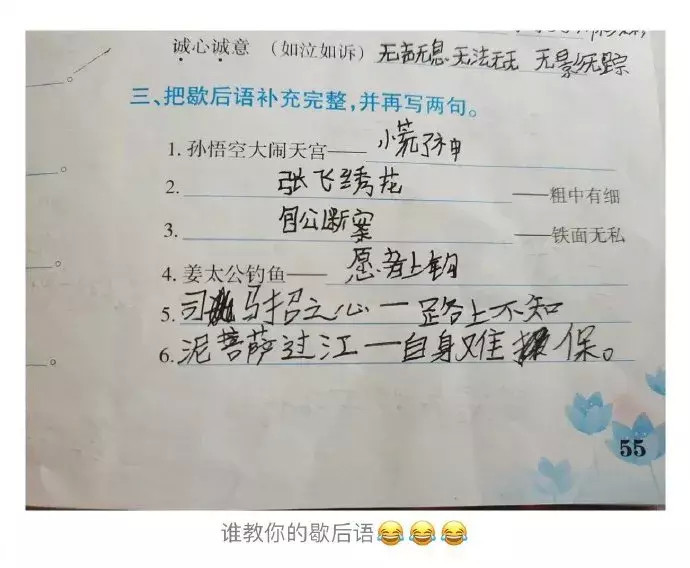 诚心诚意 (如泣如诉) 无声无息 无法无天 无影无踪
三、把歇后语补充完整,并再写两句。
1. 孙悟空大闹天宫——慌了神
2. 张飞绣花——粗中有细
3. 包公断案——铁面无私
4. 姜太公钓鱼——愿者上钩
5. 司马招之心一路上不知
6. 泥菩萨过江一自身难保。
55
谁教你的歇后语😂😂😂